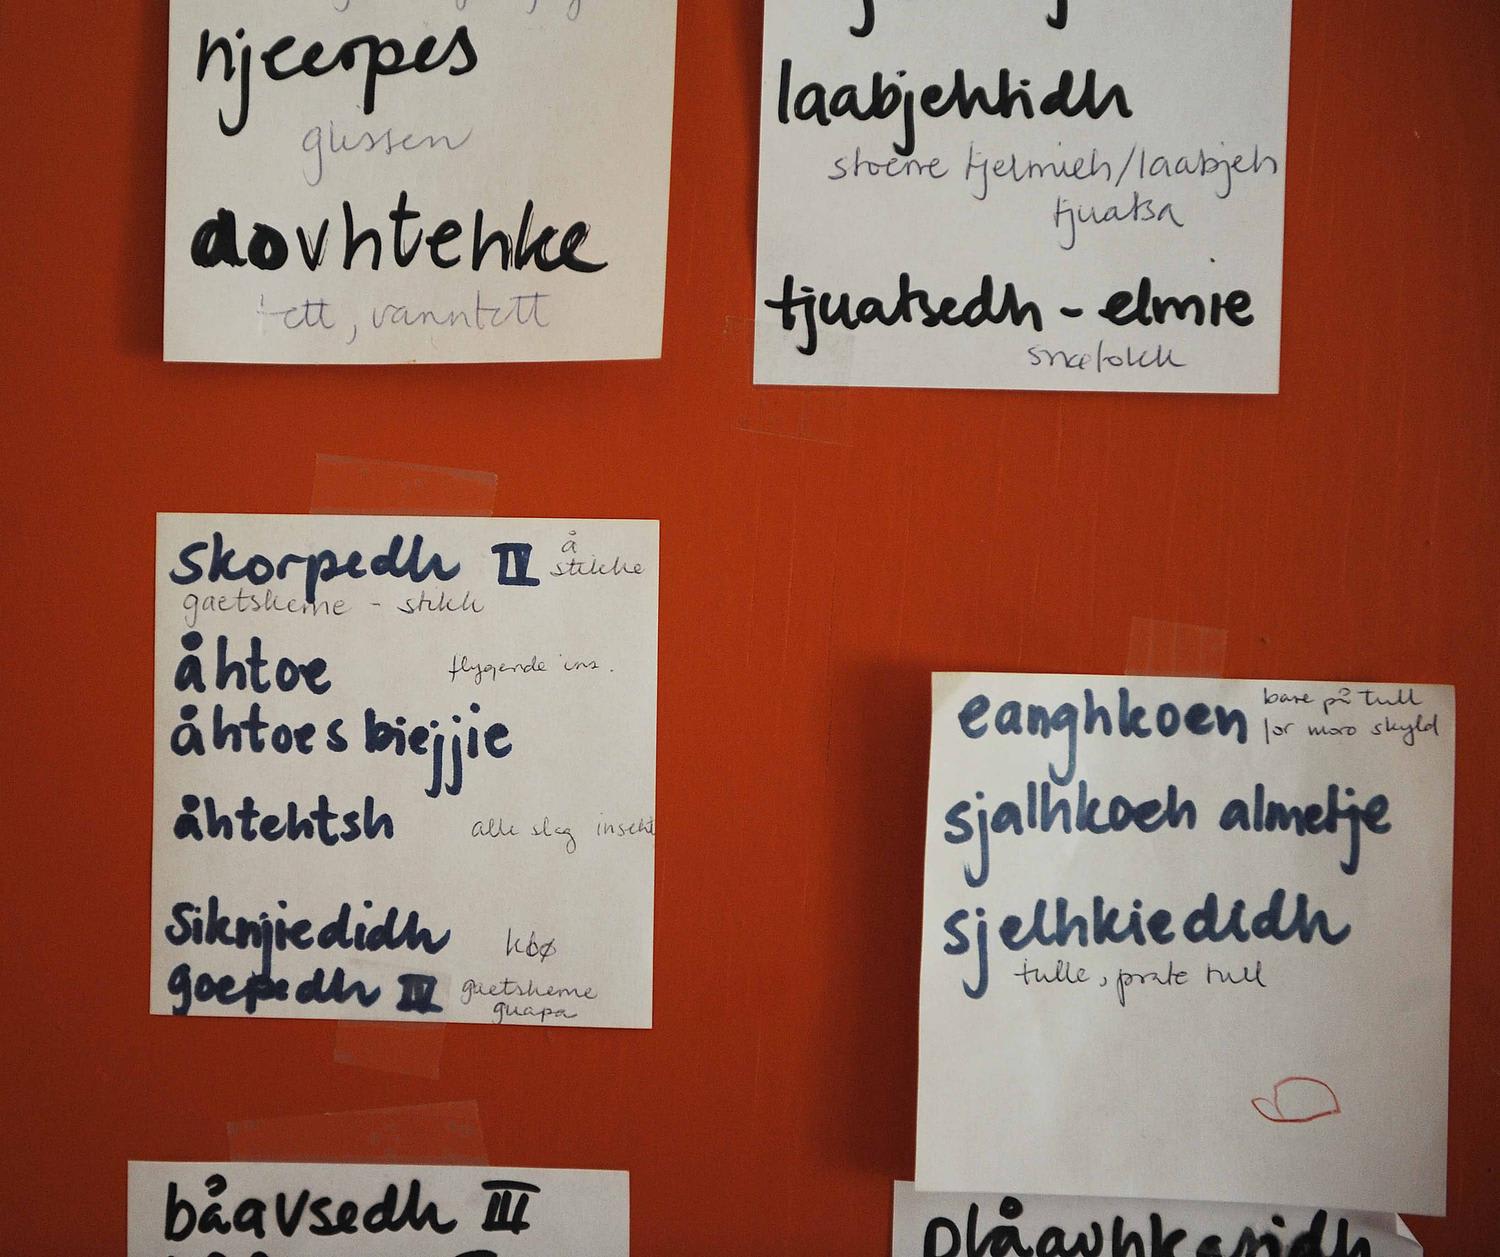 njeerpes
glissen
dovhtehke
tett, vanntett
laabjehtidh
stoerre tjelmieh/laabjeh
tjuatsa
tjuatsedh - elmie
snøfokk
skorpedh IV å
stikke
gaetskeme - stikk
åhtoe flygende ins.
åhtoes biejjie
åhtehtsh alle slag insekt
siknjiedidh kbø
goepedh IV gaetskeme
guapa
eanghkoen bare på tull
for moro skyld
sjalhkoeh almetje
sjelhkiedidh
tulle, prate tull
båavsedh III